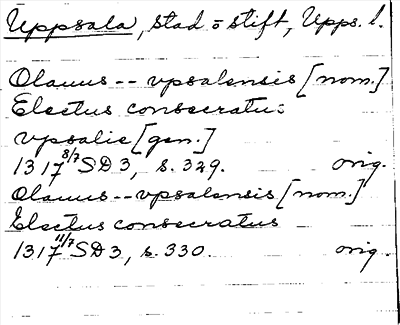 Uppsala, stad o stift, Upps. l.
Olauus -- vpsalensis [nom.]
Electus consecratus
vpsalie [gen.]
1317 8/7 SD 3, s. 329. orig.
Olauus -- vpsalensis [nom.]
Electus consecratus
1317 11/7 SD 3, s. 330. orig.